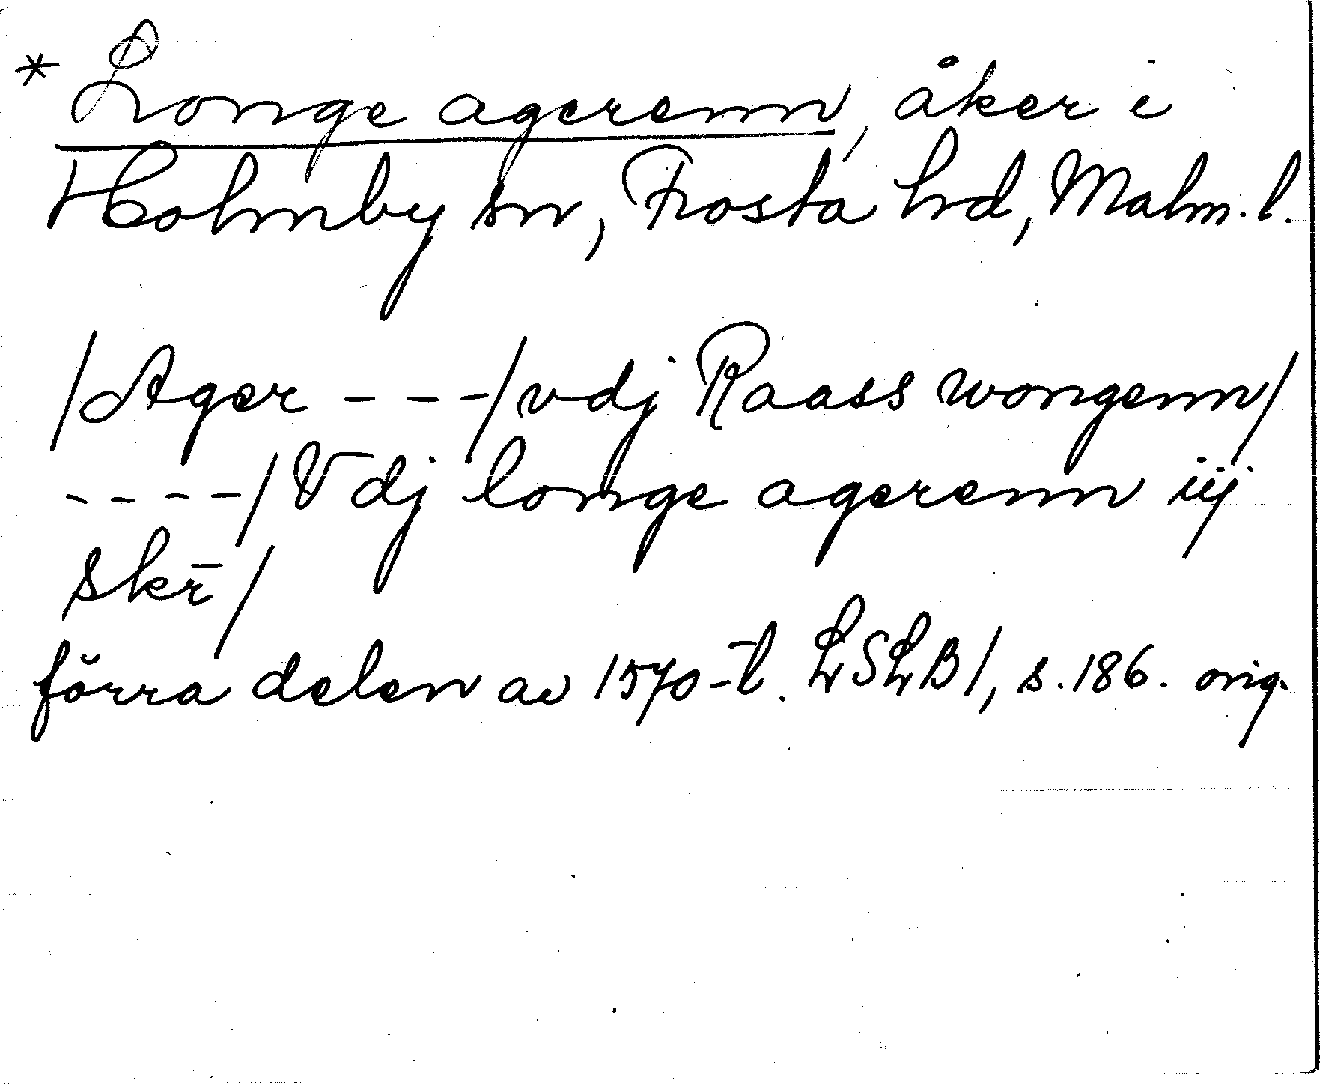 * Longe agerenn, åker i
Holmby sn, Frosta hd, Malm. l.
/Ager - - -/ vdj Raass wongenn/
- - - -/ Vdj longe agerenn iij
skr̄/
förra delen av 1570-t. LSLB1, s. 186. orig.